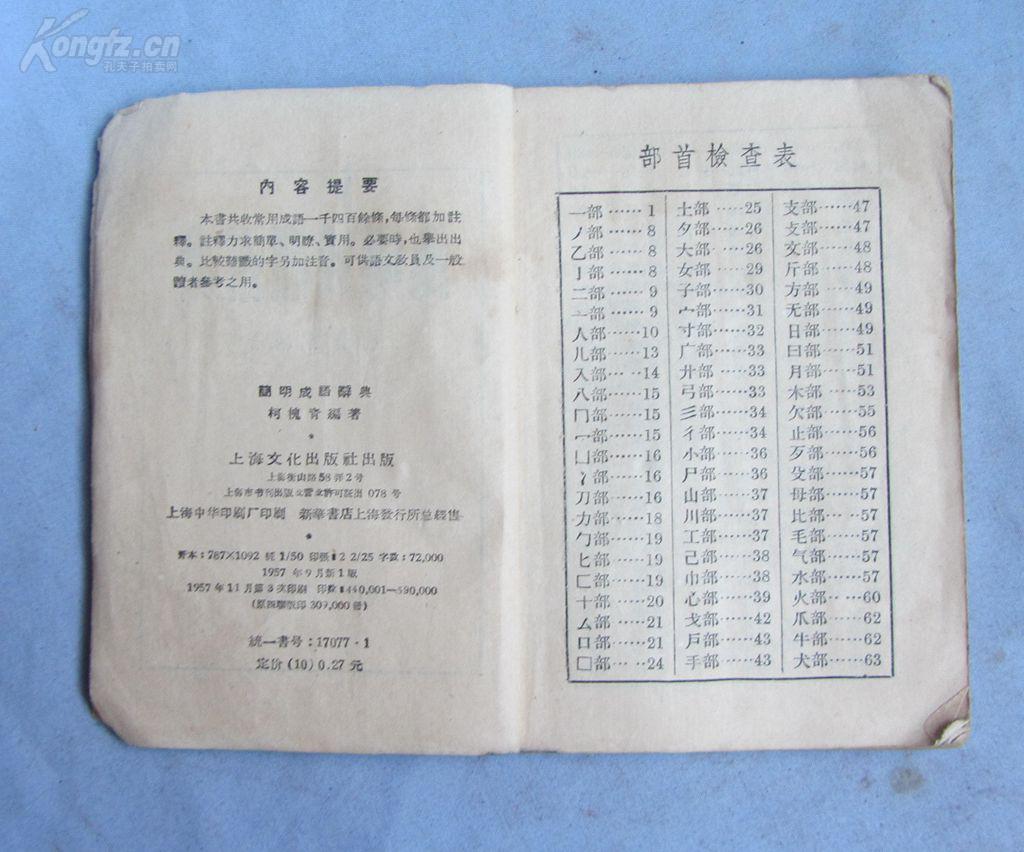 Kongfz.cn
孔夫子拍卖网
内容提要
本書共收常用成語一千四百餘條，每條都加註
釋。註釋力求簡單、明瞭、實用。必要時，也舉出出
典。比較的字另加注音。可供語文教員及一般
讀者參考之用。
簡明成語辭典
柯槐青編著
上海文化出版社出版
上海衡山路58弄2号
上海市書刊出版业营业許可証出078号
上海中华印刷厂印刷 新華書店上海發行所总經售
开本：787×1092 紙1/50 印張 2 2/25 字数：72,000
1957年9月新1版
1957年11月第3次印刷 印数 440,001—590,000
(原四聯版印309,000册)
統一書号：17077·1
定价(10)0.27元
部首檢查表
一部……1
丿部……8
乙部……8
亅部……8
二部……9
亠部……9
人部……10
儿部……13
入部……14
八部……15
冂部……15
冖部……15
凵部……16
冫部……16
刀部……16
力部……18
勹部……19
匕部……19
匚部……19
十部……20
厶部……21
口部……21
囗部……24
土部……25
夕部……26
大部……26
女部……29
子部……30
宀部……31
寸部……32
广部……33
廾部……33
弓部……33
彡部……34
彳部……34
小部……36
尸部……36
山部……37
川部……37
工部……37
己部……38
巾部……38
心部……39
戈部……42
戶部……43
手部……43
支部……47
支部……47
文部……48
斤部……48
方部……49
无部……49
日部……49
曰部……51
月部……51
木部……53
欠部……55
止部……56
歹部……56
殳部……57
母部……57
比部……57
毛部……57
气部……57
水部……57
火部……60
爪部……62
牛部……62
犬部……63